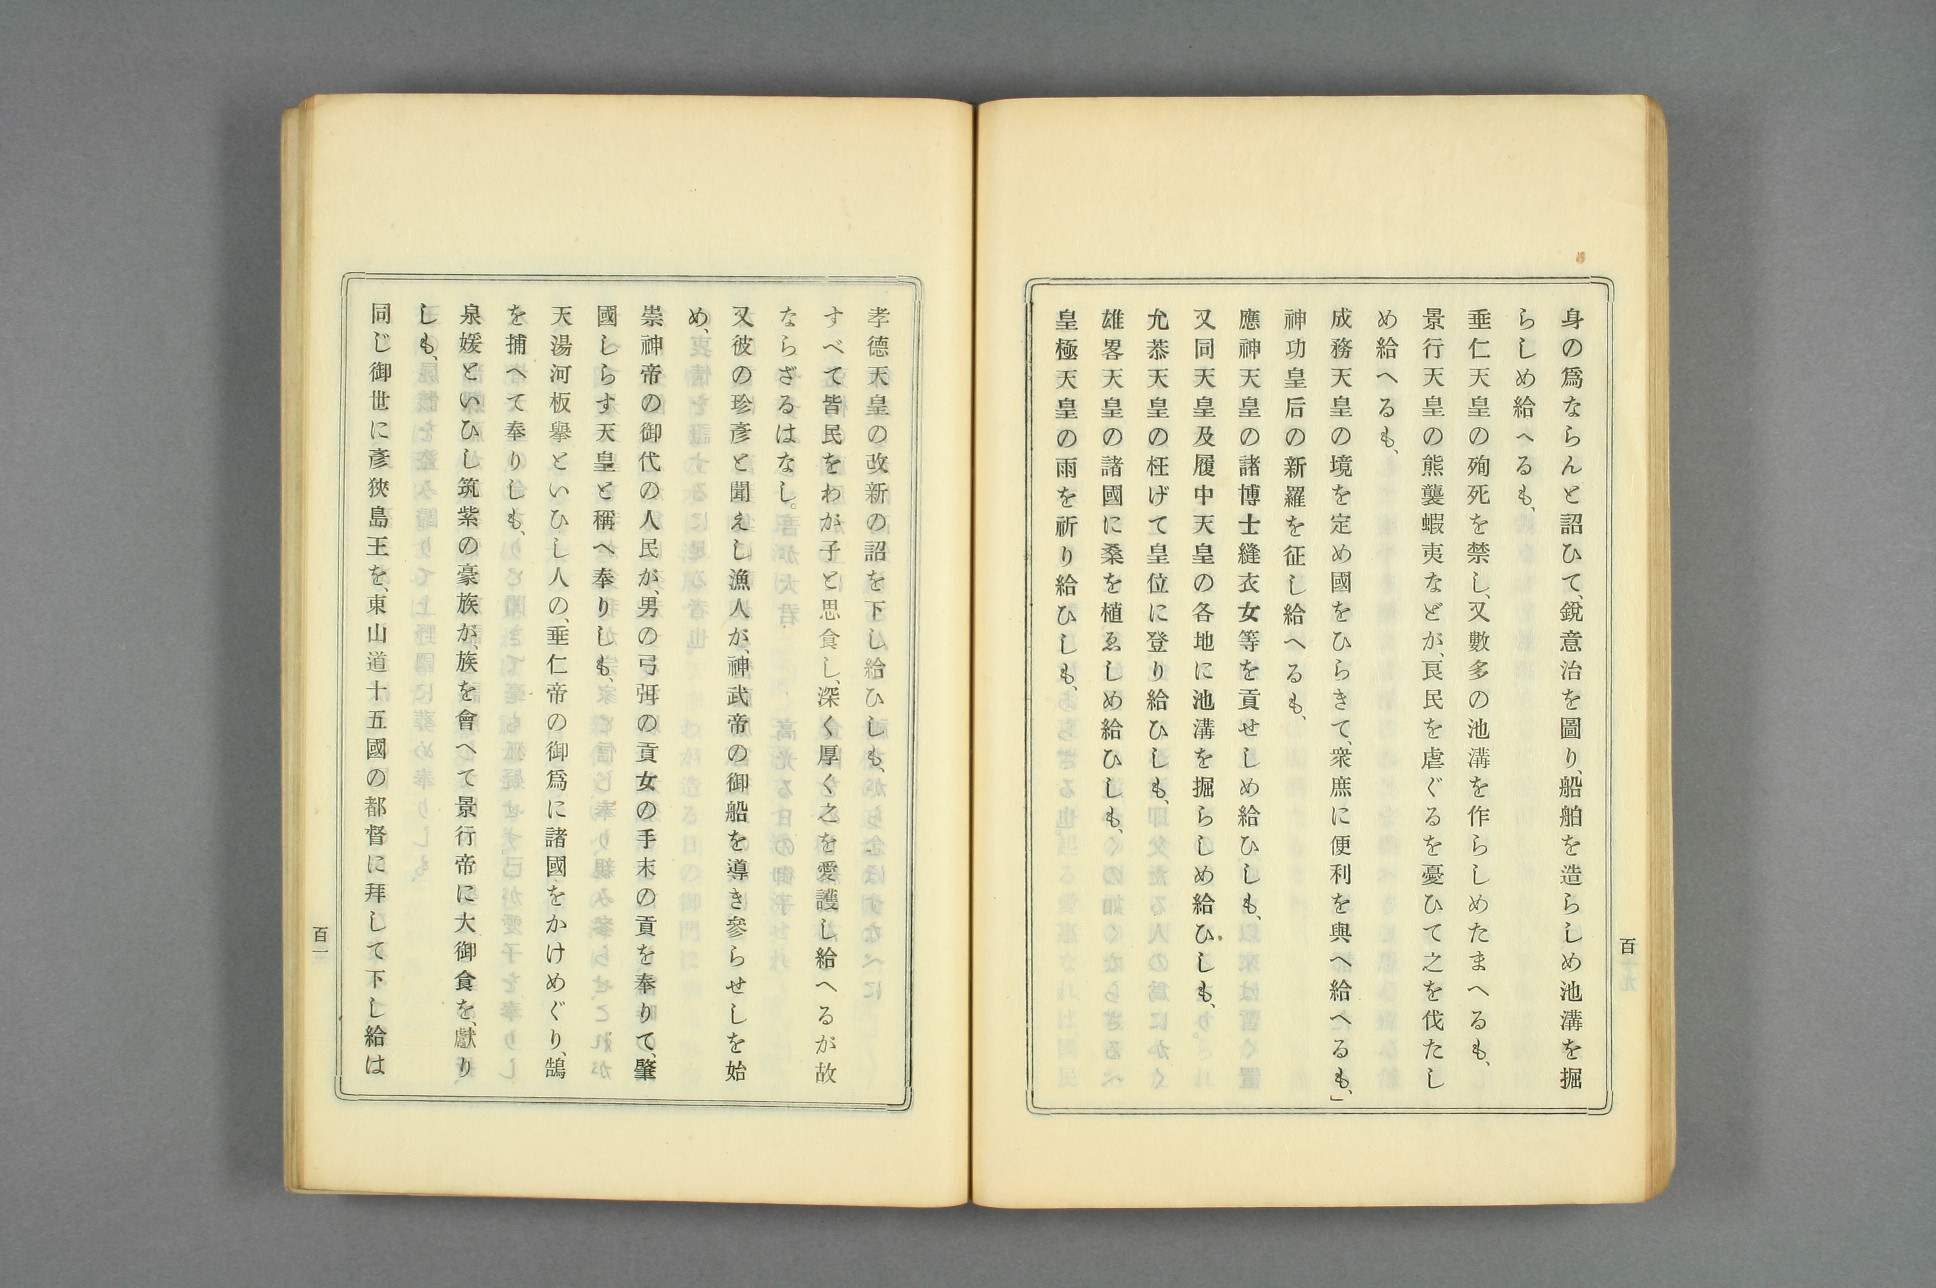 身の爲ならんと詔ひて、銳意治を圖り、船舶を造らしめ池溝を掘
らしめ給へるも、
垂仁天皇の殉死を禁し、又數多の池溝を作らしめたまへるも、
景行天皇の熊襲蝦夷などが、良民を虐ぐるを憂ひて之を伐たし
め給へるも、
成務天皇の境を定め國をひらきて、衆庶に便利を與へ給へるも、」
神功皇后の新羅を征し給へるも、
應神天皇の諸博士縫衣女等を貢せしめ給ひしも、
又同天皇及履中天皇の各地に池溝を掘らしめ給ひしも、
允恭天皇の枉げて皇位に登り給ひしも、
雄畧天皇の諸國に桑を植ゑしめ給ひしも、
皇極天皇の雨を祈り給ひしも、
百
孝德天皇の改新の詔を下し給ひしも、
すべて皆民をわが子と思食し、深く厚く之を愛護し給へるが故
ならざるはなし。
又彼の珍彥と聞えし漁人が、神武帝の御船を導き參らせしを始
め、
崇神帝の御代の人民が、男の弓弭の貢女の手末の貢を奉りて、肇
國しらす天皇と稱へ奉りしも、
天湯河板擧といひし人の、垂仁帝の御爲に諸國をかけめぐり、鵠
を捕へて奉りしも、
泉媛といひし筑紫の豪族が、族を會へて景行帝に大御食を、獻り
しも、
同じ御世に彥狹島王を、東山道十五國の都督に拜して下し給は
百一